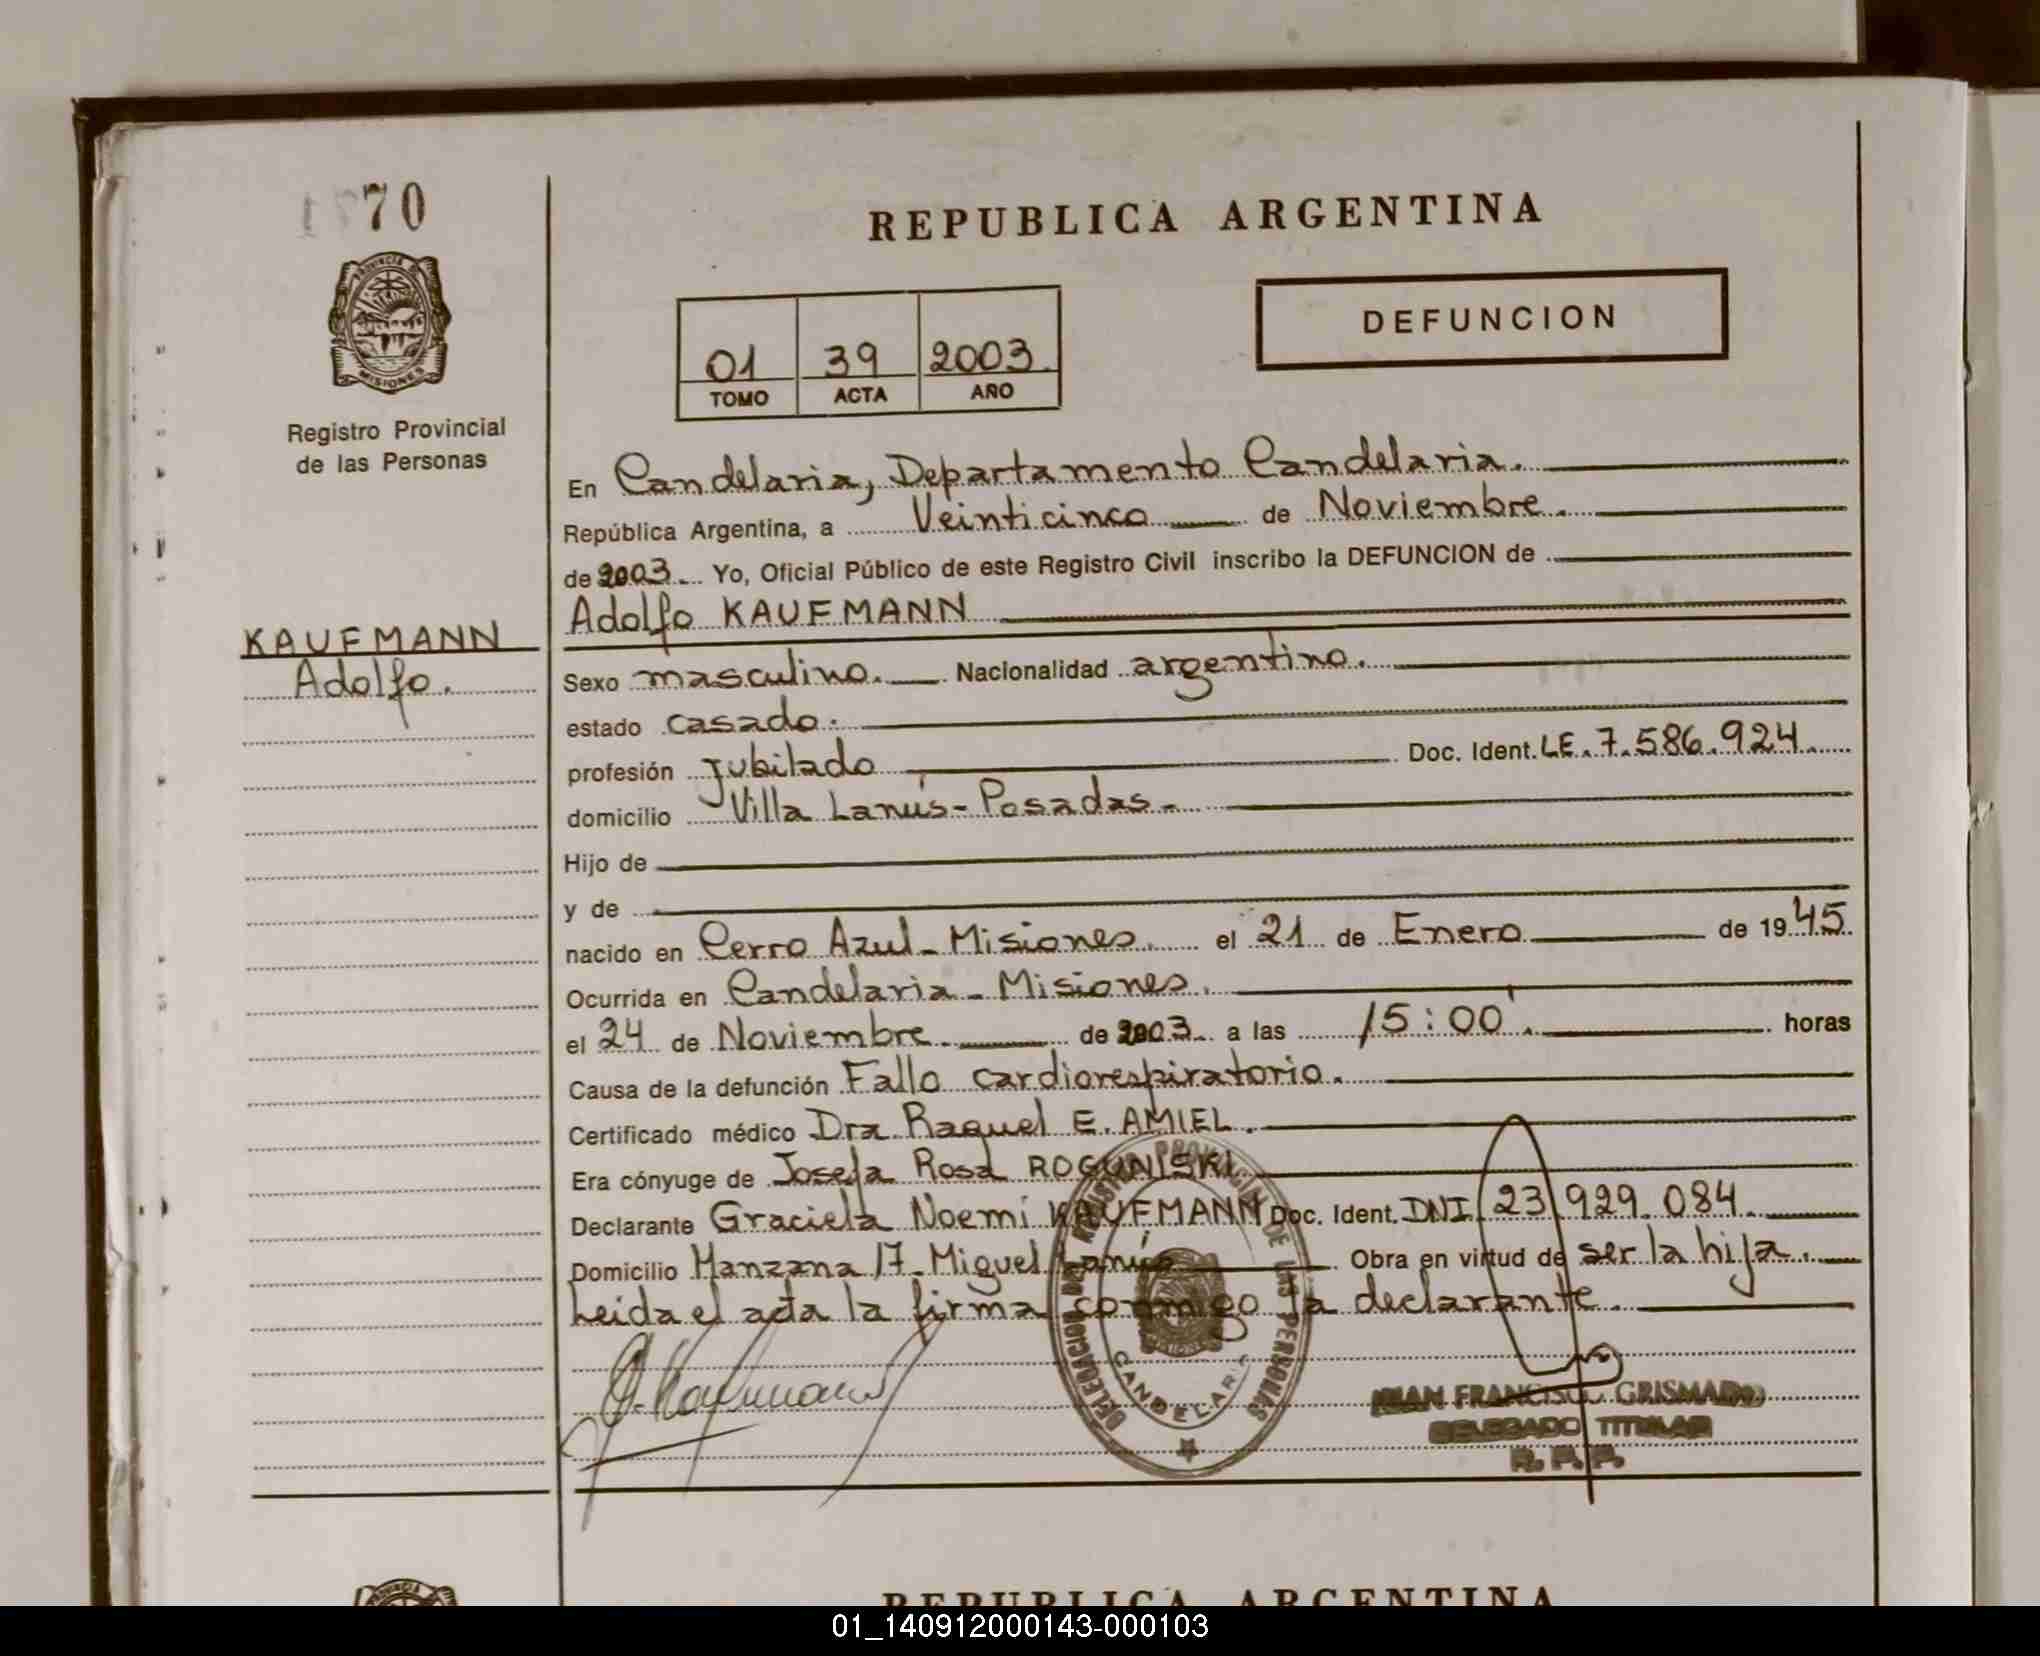 70
PROVINCIA DE
MISIONES
Registro Provincial
de las Personas
KAUFMANN
Adolfo.
REPUBLICA ARGENTINA
01 39 2003
TOMO ACTA AÑO
DEFUNCION
En Candelaria, Departamento Candelaria.
República Argentina, a Veinticinco de Noviembre.
de 2003 Yo, Oficial Público de este Registro Civil inscribo la DEFUNCION de
Adolfo KAUFMANN
Sexo masculino. Nacionalidad argentino.
estado casado.
profesión jubilado Doc. Ident. LE. 7.586.924
domicilio Villa Lanús - Posadas -
Hijo de
y de
nacido en Cerro Azul - Misiones. el 21 de Enero de 1945.
Ocurrida en Candelaria - Misiones.
el 24 de Noviembre. de 2003 a las 15:00'. horas
Causa de la defunción Fallo cardiorespiratorio.
Certificado médico Dra Raquel E. AMIEL.
Era cónyuge de Josefa Rosa ROGUNISKI
Declarante Graciela Noemi KAUFMANN Doc. Ident. DNI 23.929.084.
Domicilio Manzana 17 - Miguel Lanús Obra en virtud de ser la hija.
Leida el acta la firma conmigo la declarante.
G. Kaufmann
DELEGACION DEL REGISTRO PROVINCIAL DE LAS PERSONAS
CANDELARIA
JUAN FRANCISCO GRISMADO
DELEGADO TITULAR
R. P. P.
REPUBLICA ARGENTINA
01_140912000143-000103